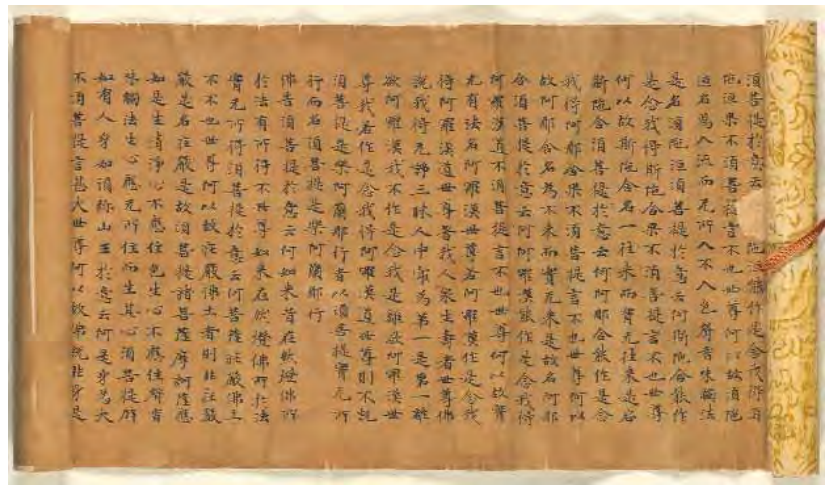 須菩提於意云 陁洹能作是念我得須
陁洹果不須菩提言不也世尊何以故須陁
洹名為入流而无所入不入色聲香味觸法
是名須陁洹須菩提於意云何斯陁含能作
是念我得斯陁含果不須菩提言不也世尊
何以故斯陁含名一往來而實无往來是名
斯陁含須菩提於意云何阿那含能作是念
我得阿那含果不須菩提言不也世尊何以
故阿那含名為不來而實无來是故名阿那
含須菩提於意云何阿羅漢能作是念我得
阿羅漢道不須菩提言不也世尊何以故實
无有法名阿羅漢世尊若阿羅漢作是念我
得阿羅漢道世尊若我人眾生壽者世尊佛
說我得无諍三昧人中㝡為第一是第一離
欲阿羅漢我不作是念我是離欲阿羅漢世
尊我若作是念我得阿羅漢道世尊則不說
須菩提是樂阿蘭那行者以須菩提實无所
行而名須菩提是樂阿蘭那行
佛告須菩提於意云何如來昔在然燈佛所
於法有所得不世尊如來在然燈佛所於法
實无所得須菩提於意云何菩薩莊嚴佛土
不不也世尊何以故莊嚴佛土者則非莊嚴
是名莊嚴是故須菩提諸菩薩摩訶薩應
如是生清淨心不應住色生心不應住聲香
味觸法生心應无所住而生其心須菩提譬
如有人身如須彌山王於意云何是身為大
不須菩提言甚大世尊何以故佛說非身是